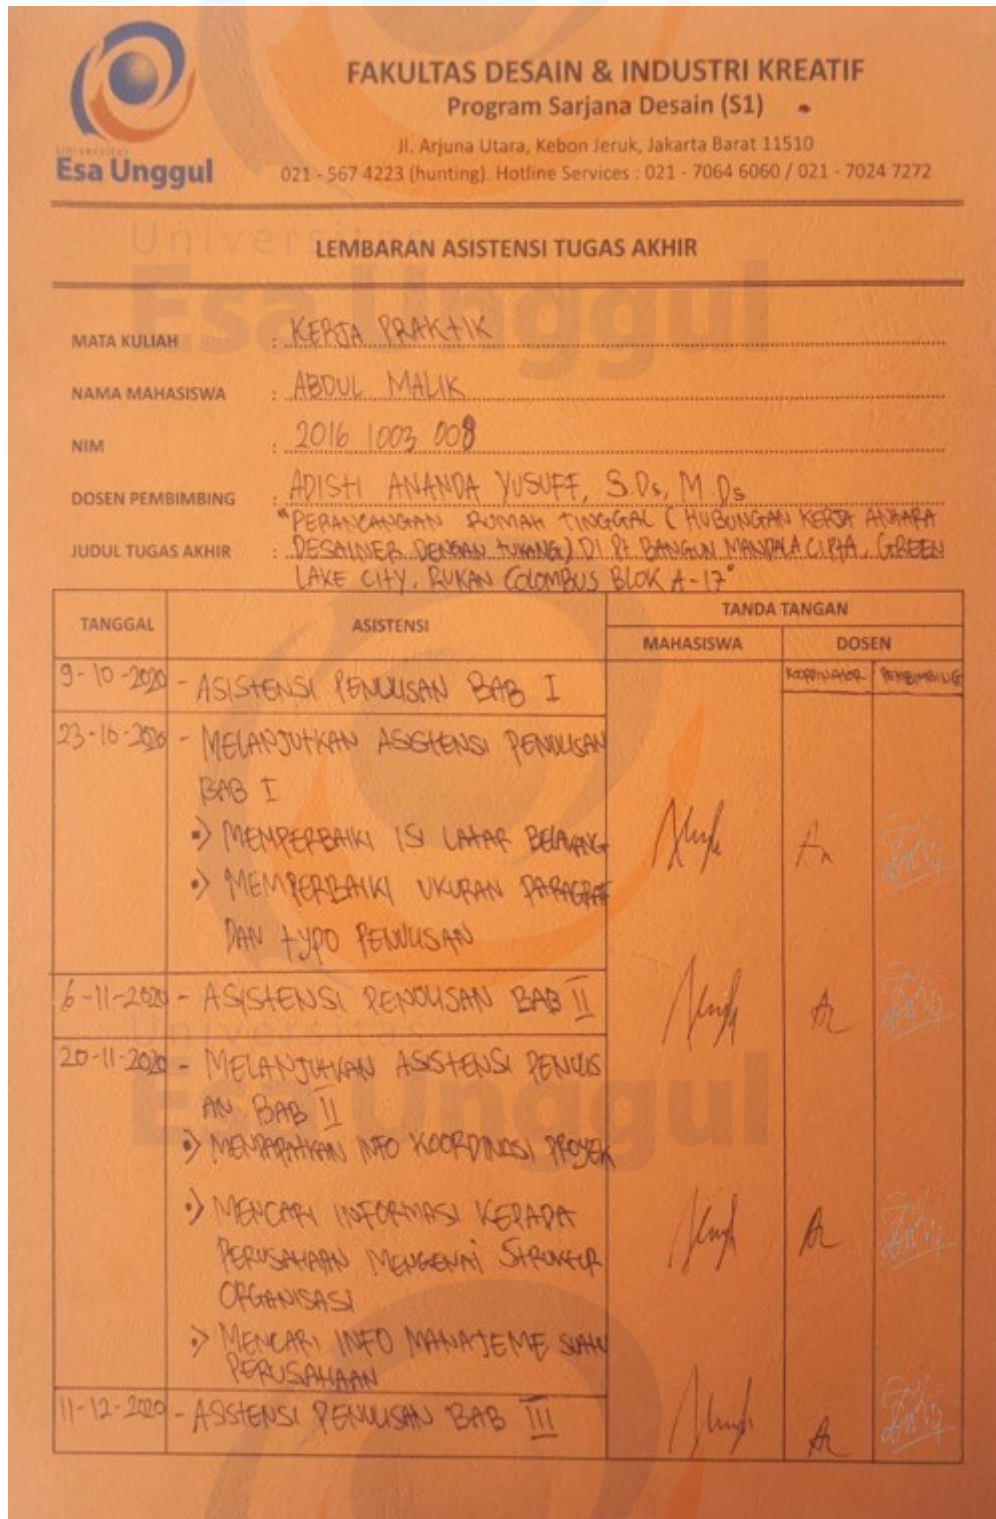 FAKULTAS DESAIN & INDUSTRI KREATIF
Program Sarjana Desain (S1)
Jl. Arjuna Utara, Kebon Jeruk, Jakarta Barat 11510
021 - 567 4223 (hunting). Hotline Services : 021 - 7064 6060 / 021 - 7024 7272
Universitas
Esa Unggul
Universitas
Esa Unggul
LEMBARAN ASISTENSI TUGAS AKHIR
MATA KULIAH : KERJA PRAKTIK
NAMA MAHASISWA : ABDUL MALIK
NIM : 2016 1003 008
DOSEN PEMBIMBING : ADISTI ANANDA YUSUFF, S.Ds, M.Ds
"PERANCANGAN RUMAH TINGGAL (HUBUNGAN KERJA ANTARA
JUDUL TUGAS AKHIR : DESAINER DENGAN TUKANG) DI PT BANGUN MANDALA CIPTA, GREEN
LAKE CITY, RUKAN COLOMBUS BLOK A-17"
TANGGAL ASISTENSI TANDA TANGAN
MAHASISWA DOSEN
KOORDINATOR PEMBIMBING
9-10-2020 - ASISTENSI PENULISAN BAB I
23-10-2020 - MELANJUTKAN ASISTENSI PENULISAN
BAB I
•> MEMPERBAIKI ISI LATAR BELAKANG
•> MEMPERBAIKI UKURAN PARAGRAF
DAN TYPO PENULISAN
6-11-2020 - ASISTENSI PENULISAN BAB II
Universitas
Esa Unggul
20-11-2020 - MELANJUTKAN ASISTENSI PENULIS
AN BAB II
•> MENDAPATKAN INFO KOORDINASI PROYEK
•> MENCARI INFORMASI KEPADA
PERUSAHAAN MENGENAI STRUKTUR
ORGANISASI
•> MENCARI INFO MANAJEME SUATU
PERUSAHAAN
11-12-2020 - ASISTENSI PENULISAN BAB III